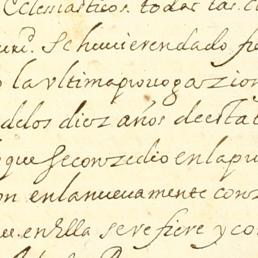 Eclesiasticos. todas las
Se huvieren dado
la vltima prorogazion
de los diez años de esta
que se conzedio en la
en la nuevamente con
en Ella se refiere y co